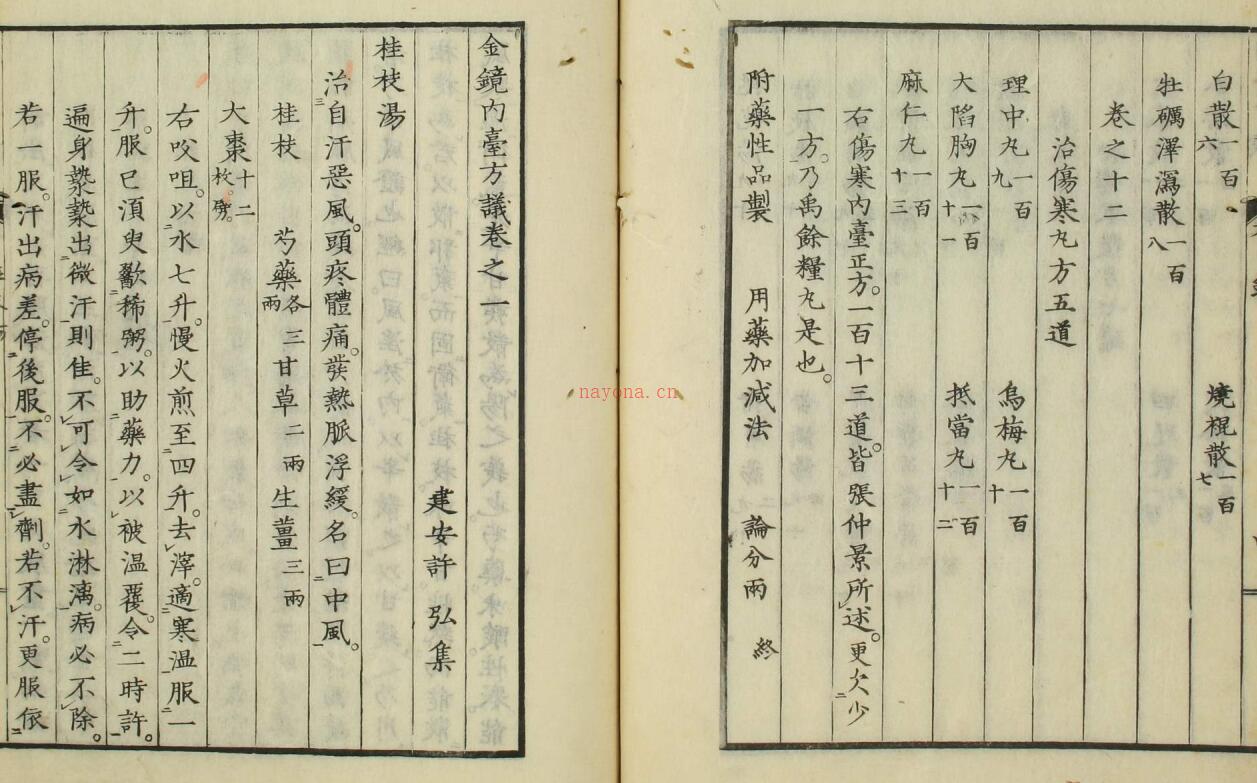 白散一百六　燒裩散一百七
牡礪澤瀉散一百八
卷之十二
治傷寒丸方五道
理中丸一百九　烏梅丸一百十
大陷胸丸一百十一　抵當丸一百十二
麻仁丸一百十三
右傷寒內臺正方。一百十三道。皆張仲景所述。更欠少
一方。乃禹餘糧丸是也。
附藥性品製　用藥加減法　論分兩　終
金鏡內臺方議卷之一
建安許　弘集
桂枝湯
治自汗惡風。頭疼體痛。發熱脈浮緩。名曰中風。
桂枝　芍藥各三兩　甘草二兩　生薑三兩
大棗十二枚。劈。
右㕮咀。以水七升。慢火煎至四升。去滓。適寒溫服一
升。服已須臾歠稀粥。以助藥力。以被溫覆。令二時許。
遍身漐漐出微汗則佳。不可令如水淋漓。病必不除。
若一服。汗出病差。停後服。不必盡劑。若不汗。更服依
nayona.cn